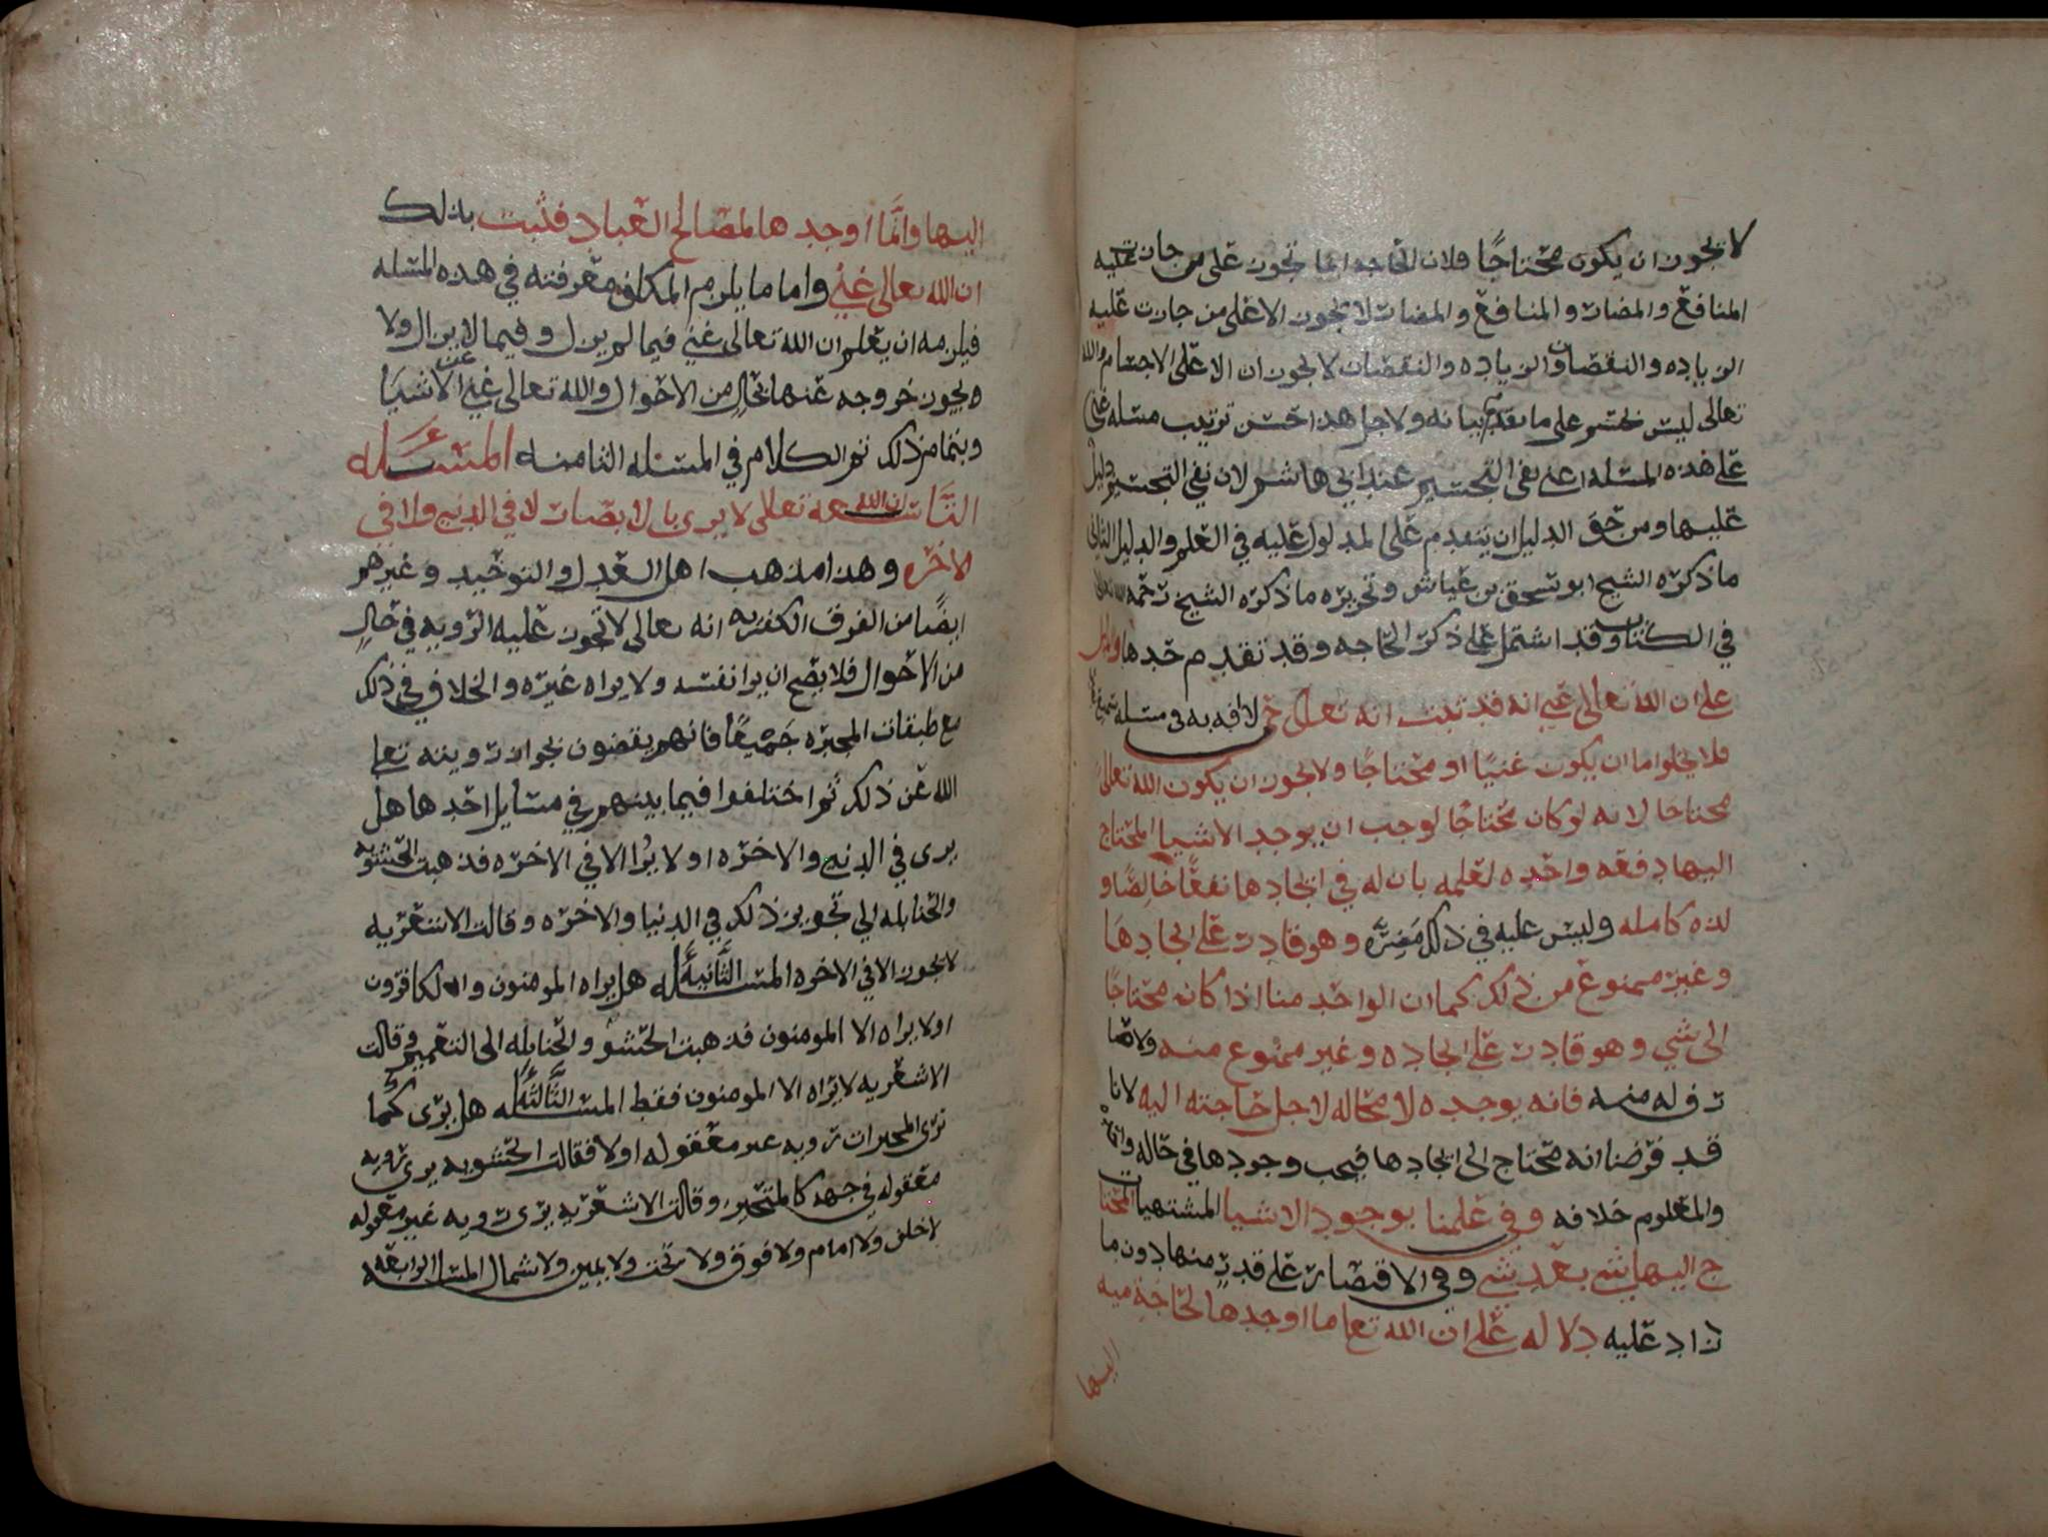 لا يجوز ان يكون محتاجًا فلان الحاجه انما تجوز على من جازت عليه
المنافع والمضار والمنافع والمضار لا تجوز الا على من جازت عليه
الزياده والنقصان والزياده والنقصان لا يجوزان الا على الاجسام والله
تعالى ليس بجسم على ما تقدم بيانه ولاجل هذا احسن ترتيب مسله غني
على هذه المسله اعني نفي التجسيم عند ابي هاشم لان نفي التجسيم دليل
عليها ومن حق الدليل ان يتقدم على المدلول عليه في العلم والدليل الثاني
ما ذكره الشيخ ابو اسحق بن عياش وتحريره ما ذكره الشيخ رحمه الله تعالى
في الكتاب وقد اشتمل على ذكر الحاجه وقد تقدم حدها
على ان الله تعالى غني انه قد ثبت انه تعالى حي لا افه به في مسله
فلا يخلوا اما ان يكون غنيًا او محتاجًا ولا يجوز ان يكون الله تعالى
محتاجا لانه لو كان محتاجًا لوجب ان يوجد الاشيا المحتاج
اليها دفعه واحده لعلمه بان له في ايجادها نفعًا خالصًا و
لذه كامله وليس عليه في ذلك مضرّه وهو قادر على ايجادها
وغير ممنوع من ذلك كما ان الواحد منا اذا كان محتاجًا
الى شي وهو قادر على ايجاده وغير ممنوع منه ولا صا
رف له منه فانه يوجده لا محاله لاجل حاجته اليه لانا
قد فرضنا انه محتاج الى ايجادها فيجب وجودها في حاله
والمعلوم خلافه وفي علمنا بوجود الاشيا المشتهيات المحتا
ج اليها شي بعد شي وفي الاقتصار على قدرٍ منها دون ما
زاد عليه دلاله على ان الله تعا ما اوجدها لحاجة منه
اليها
اليها وانّما اوجدها لمصالح العباد فثبت بذلك
ان الله تعالى غني واما ما يلزم المكلف معرفته في هذه المسله
فيلزمه ان يعلم ان الله تعالى غني فيما لم يزل وفيما لا يزال ولا
يجوز خروجه عنها بحالٍ من الاحوال والله تعالى غني عن الاشيا
وبتمام ذلك تم الكلام في المسئله الثامنه المسئله
التاسعه ان الله تعالى لا يرى بالابصار لا في الدنيا ولا في
الاخره وهذا مذهب اهل العدل والتوحيد وغيرهم
ايضًا من الفرق الكفريه انه تعالى لا تجوز عليه الرويه في حالٍ
من الاحوال فلا يصح ان يرا نفسه ولا يراه غيره والخلاف في ذلك
مع طبقات المجبره جميعًا فانهم يقضون بجواز رويته تعا
الله عن ذلك ثم اختلفوا فيما بينهم في مسايل احدها هل
يرى في الدنيا والاخره او لا يرا الا في الاخره فذهبت الحشويه
والحنابله الى تجويز ذلك في الدنيا والاخره وقالت الاشعريه
لا يجوز الا في الاخره المسله الثانيه هل يراه المومنون والكافرون
او لا يراه الا المومنون فذهبت الحشو والحنابله الى التعميم وقالت
الاشعريه لا يراه الا المومنون فقط المسله الثالثه هل يرى كما
ترى المحيزات رويه غير معقوله او لا فقالت الحشويه يرى رويه
معقوله في جهه كالمتحيز وقالت الاشعريه يرى رويه غير معقوله
لا خلف ولا امام ولا فوق ولا تحت ولا يمين ولا شمال المسله الرابعه